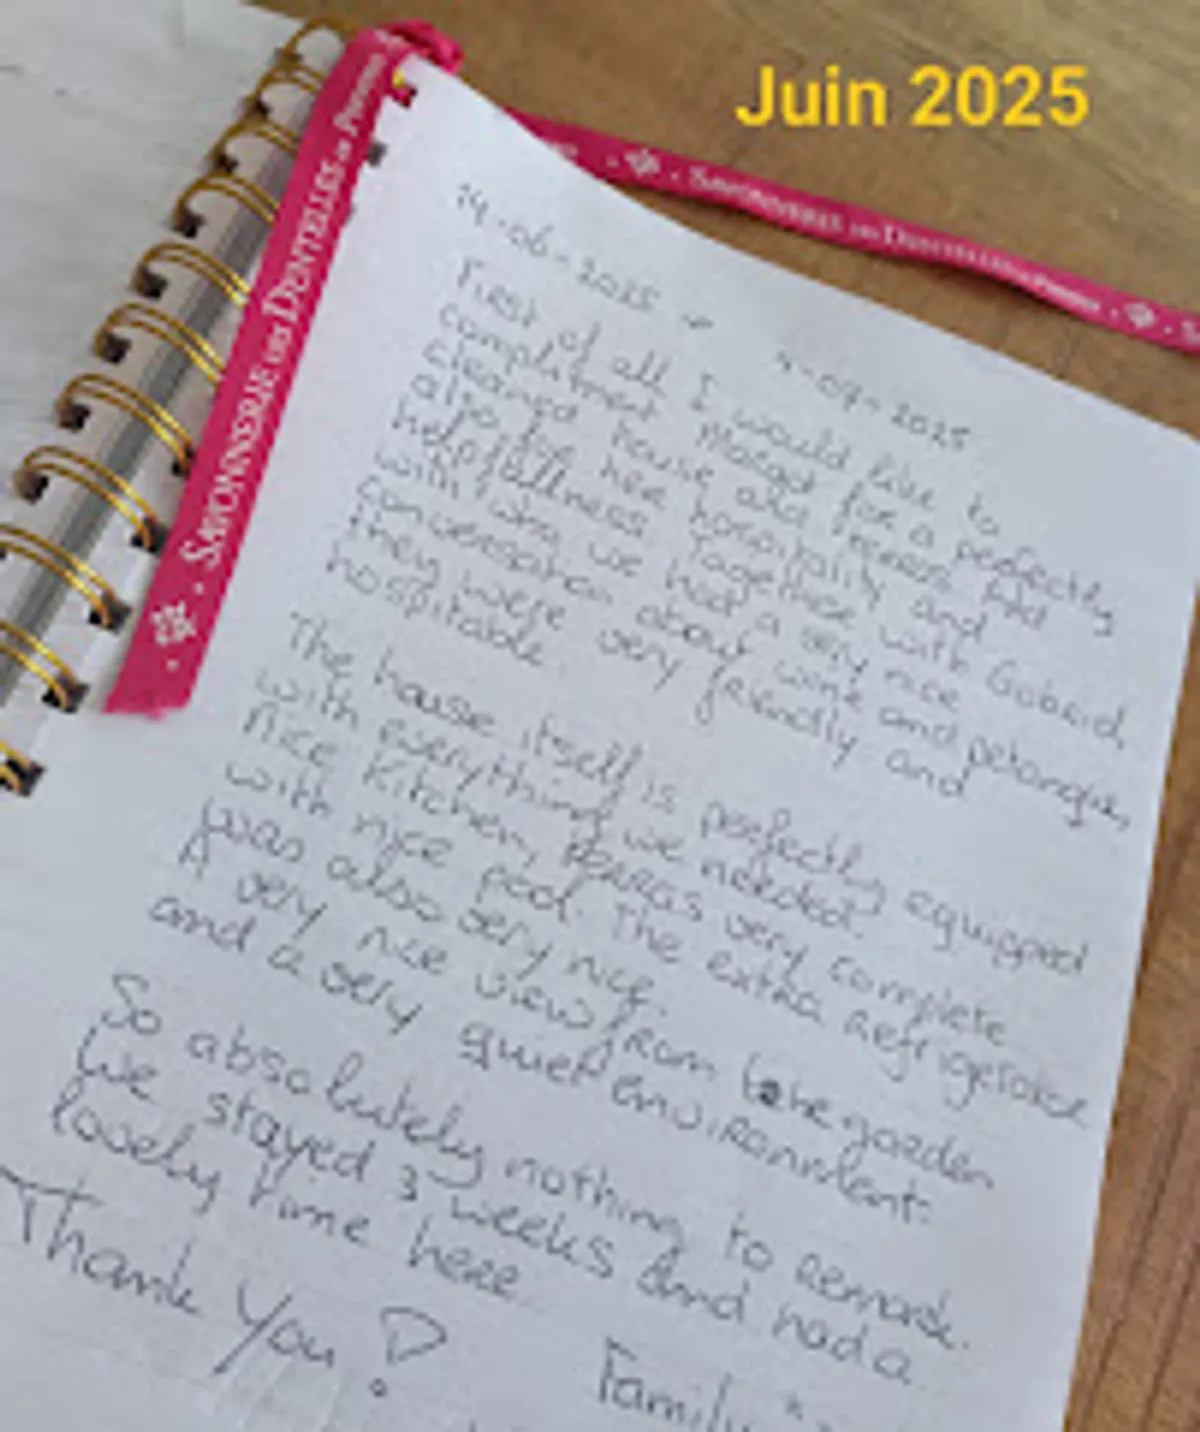 Juin 2025
SAVONNERIE DES DENTELLES DE
SAVONNERIE DES DENTELLES DE
14-06-2025 -07-2025
First of all I would like to
compliment Margot for a perfectly
cleaned house and
also for her hospitality and
helpfullness. Together with Gabriel,
with who we had a very nice
conversation about wine and petanque,
they were very friendly and
hospitable.
The house itself is perfectly equipped
with everything we needed.
Nice Kitchen, very complete
with nice pool. The extra refrigerator
was also very nice.
A very nice view from the garden
and a very quiet environment.
So absolutely nothing to remark.
We stayed 3 weeks and had a
lovely time here
Thank You!
Family